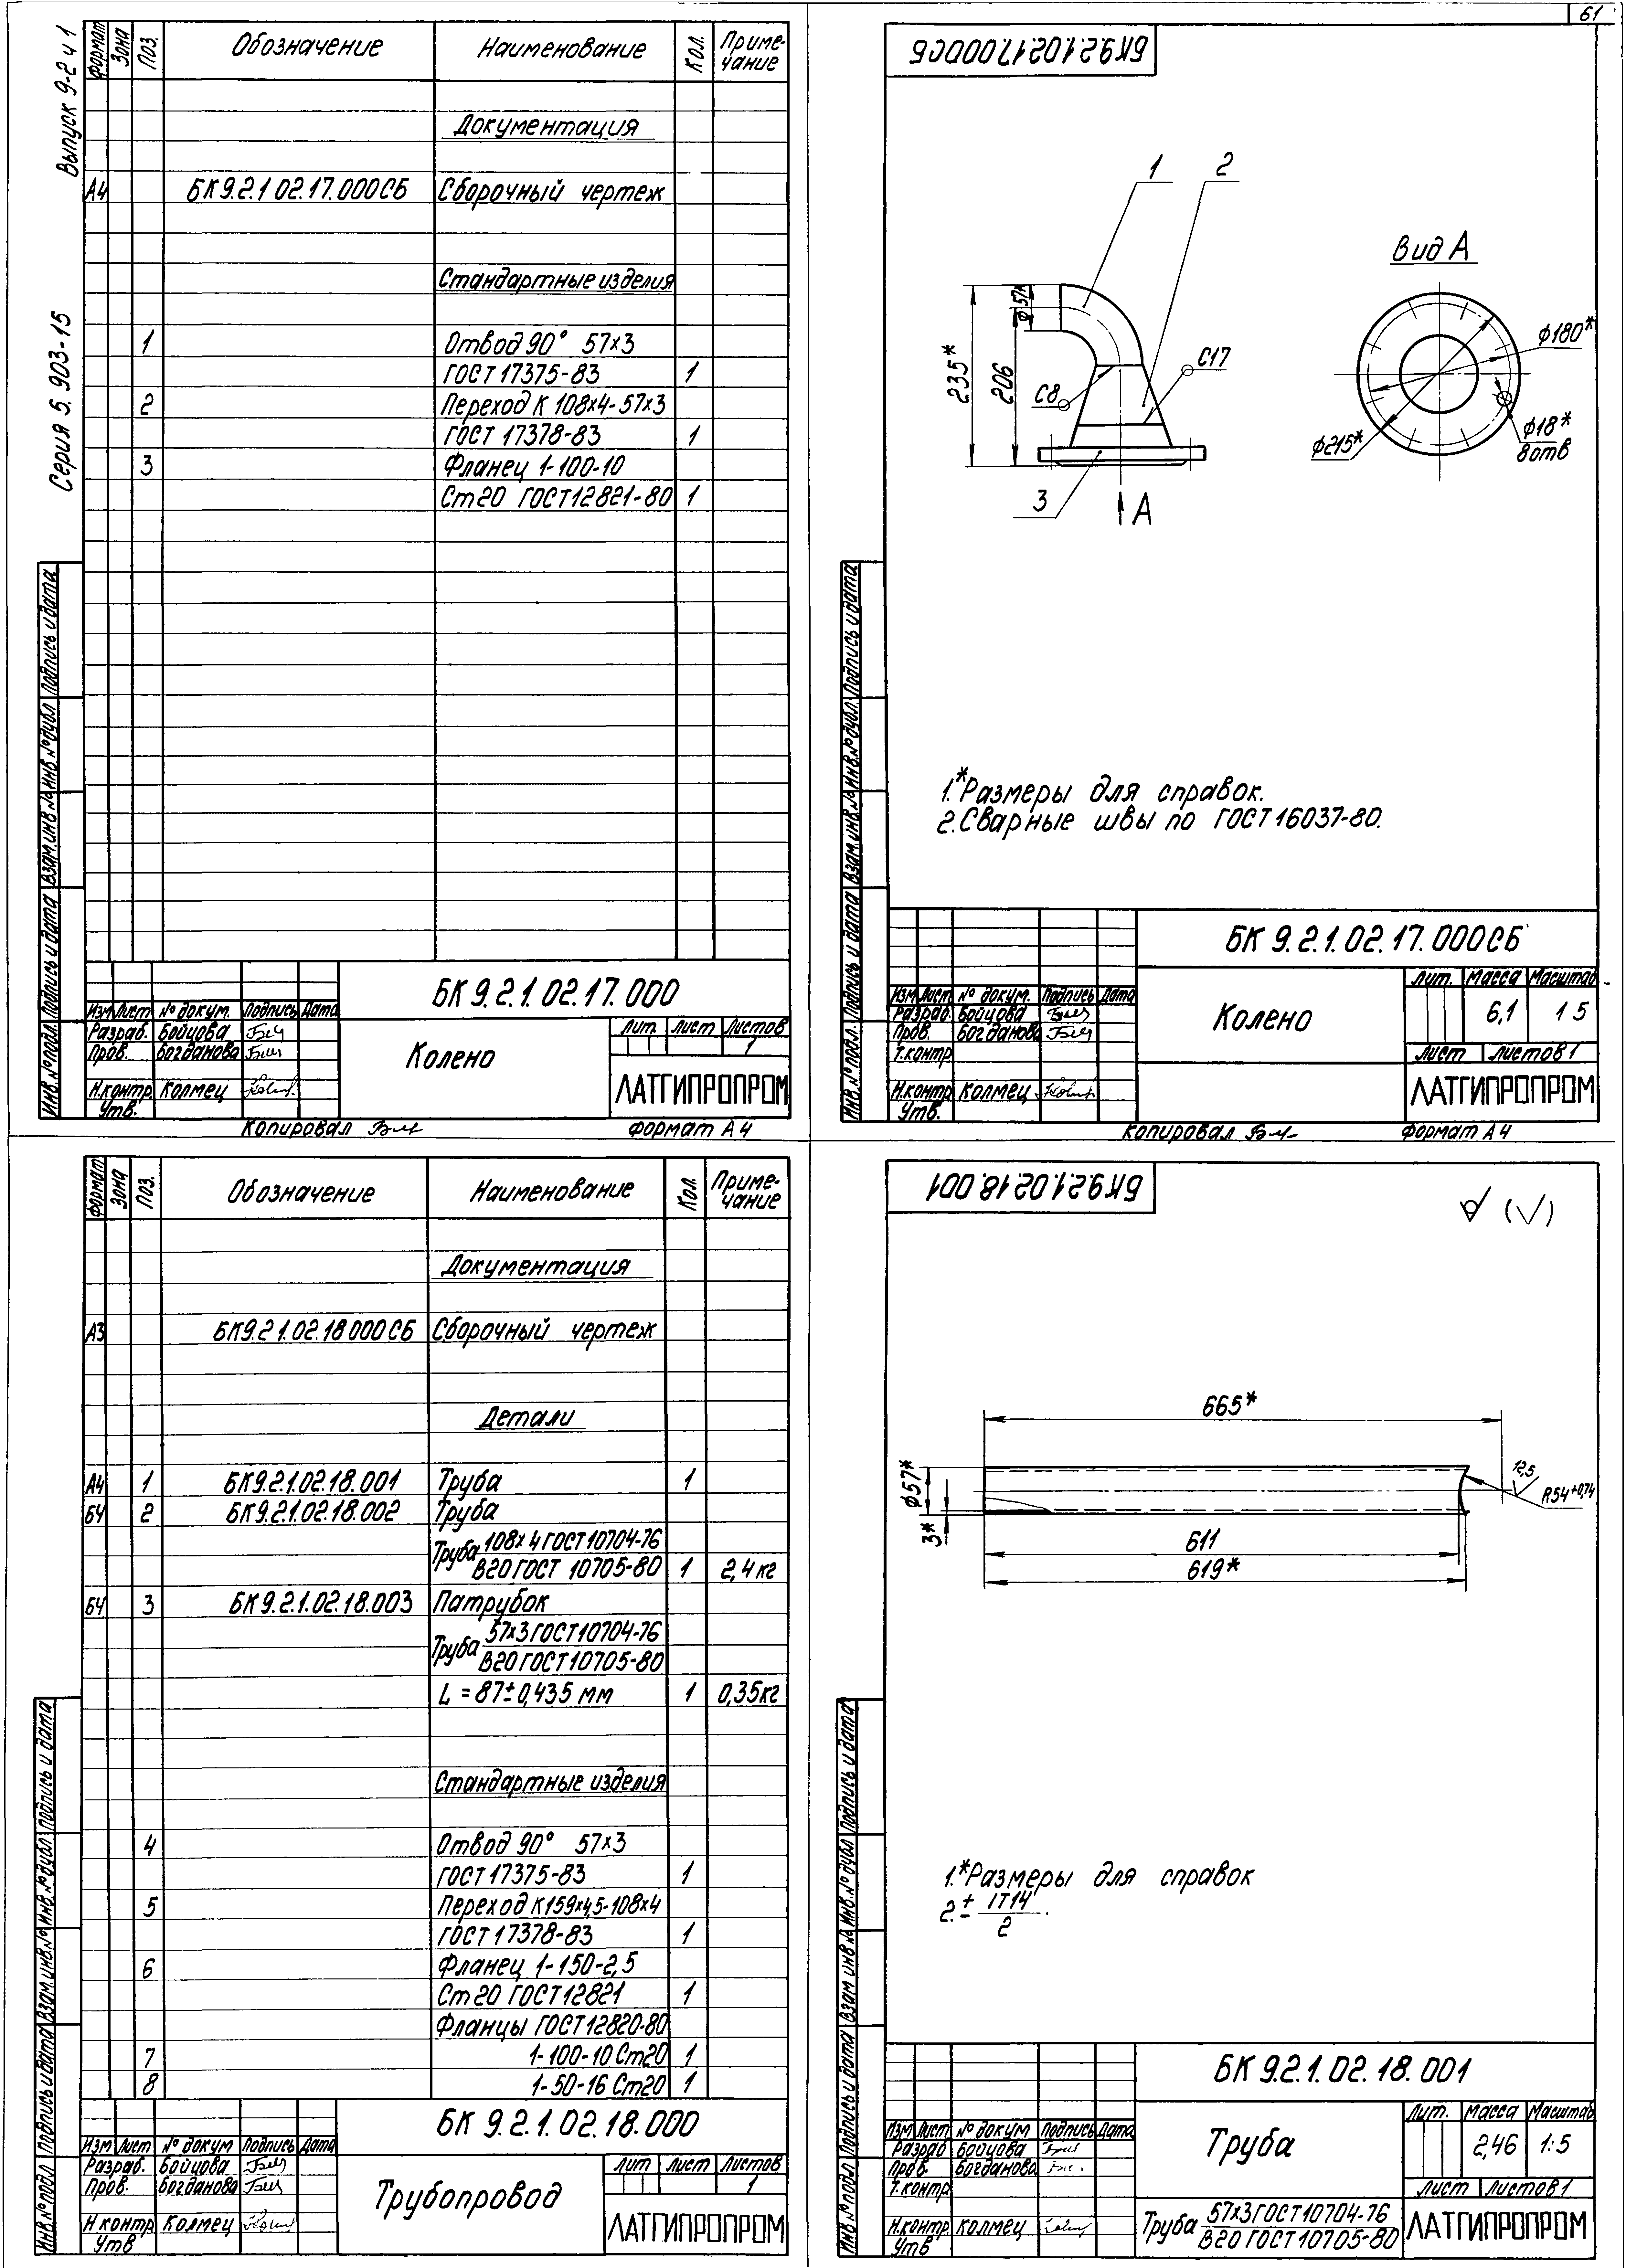 61
Выпуск 9-2 ч 1
Серия 5.903-15
Формат Зона Поз. Обозначение Наименование Кол. Приме-
чание
Документация
А4 БК9.2.1 02.17.000СБ Сборочный чертеж
Стандартные изделия
1 Отвод 90° 57×3
ГОСТ 17375-83 1
2 Переход К 108×4-57×3
ГОСТ 17378-83 1
3 Фланец 1-100-10
Ст20 ГОСТ12821-80 1
Инв.№ подл. Подпись и дата Взам.инв.№ Инв.№ дубл Подпись и дата
БК 9.2.1.02.17.000
Изм Лист № докум. Подпись Дата
Разраб. Бойцова
Пров. Богданова
Н.контр. Колмец
Утв.
Колено
Лит. Лист Листов
1
ЛАТГИПРОПРОМ
Копировал Формат А4
БК9.2.1.02.17.000СБ
1 2
Вид А
φ57*
235*
206
С8
С17
3
А
φ180*
φ215*
φ18*
8отв
1.*Размеры для справок.
2.Сварные швы по ГОСТ 16037-80.
Инв.№ подл. Подпись и дата Взам.инв.№ Инв.№ дубл. Подпись и дата
БК 9.2.1.02.17.000СБ
Изм Лист № докум. Подпись Дата
Разраб. Бойцова
Пров. Богданова
Т.контр
Н.контр Колмец
Утв.
Колено
Лит. Масса Масштаб
6,1 1 5
Лист Листов 1
ЛАТГИПРОПРОМ
Копировал Формат А4
Формат Зона Поз. Обозначение Наименование Кол. Приме-
чание
Документация
А3 БК9.2 1.02.18 000 СБ Сборочный чертеж
Детали
А4 1 БК9.2.1.02.18.001 Труба 1
БЧ 2 БК9.2.1.02.18.002 Труба
Труба 108×4 ГОСТ10704-76
В20 ГОСТ 10705-80 1 2,4 кг
БЧ 3 БК9.2.1.02.18.003 Патрубок
Труба 57×3 ГОСТ10704-76
В20 ГОСТ10705-80
L = 87±0,435 мм 1 0,35кг
Стандартные изделия
4 Отвод 90° 57×3
ГОСТ 17375-83 1
5 Переход К159×4,5-108×4
ГОСТ 17378-83 1
6 Фланец 1-150-2,5
Ст 20 ГОСТ12821 1
Фланцы ГОСТ12820-80
7 1-100-10 Ст20 1
8 1-50-16 Ст20 1
Инв.№ подл Подпись и дата Взам.инв.№ Инв.№ дубл Подпись и дата
БК 9.2.1.02.18.000
Изм Лист № докум Подпись Дата
Разраб. Бойцова
Пров. Богданова
Н контр Колмец
Утв
Трубопровод
Лит Лист Листов
1
ЛАТГИПРОПРОМ
БК9.2.1.02.18.001
(√)
665*
φ57*
3*
12,5
R54⁺⁰,⁷⁴
611
619*
1.*Размеры для справок
2. ± IT14
2 .
Инв.№ подл Подпись и дата Взам инв.№ Инв.№ дубл Подпись и дата
БК 9.2.1.02.18.001
Изм Лист № докум Подпись Дата
Разраб Бойцова
Пров. Богданова
Т.контр
Н.контр Колмец
Утв
Труба
Лит. Масса Масштаб
2,46 1:5
Лист Листов 1
Труба 57×3 ГОСТ10704-76
В20 ГОСТ10705-80
ЛАТГИПРОПРОМ